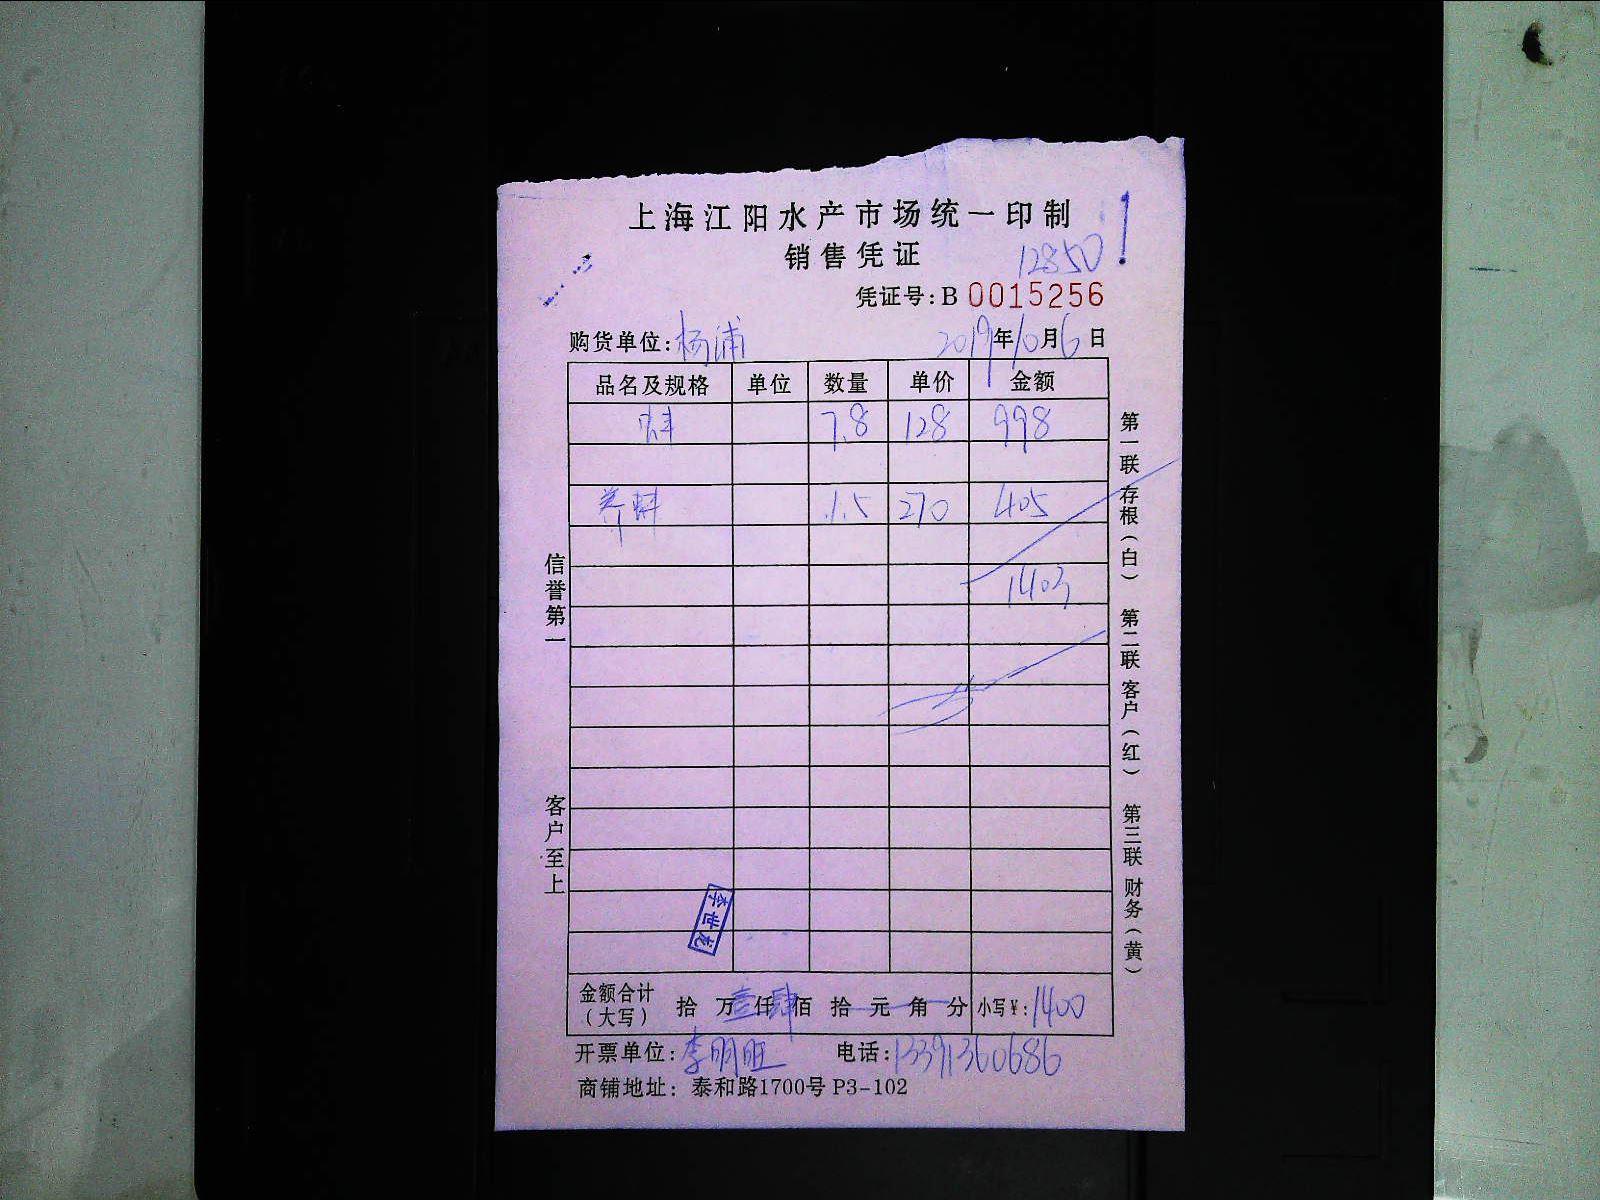 上海江阳水产市场统一印制
销售凭证
12850
凭证号:B 0015256
购货单位:杨浦 2019年10月6日
品名及规格 单位 数量 单价 金额
7.8 128 998
1.5 270 405
1403
信誉第一
客户至上
第一联 存根(白) 第二联 客户(红) 第三联 财务(黄)
李世龙
金额合计(大写) 拾 万壹仟肆佰 拾 元 角 分 小写¥:1400
开票单位:李明旺 电话:13391360686
商铺地址:泰和路1700号 P3-102